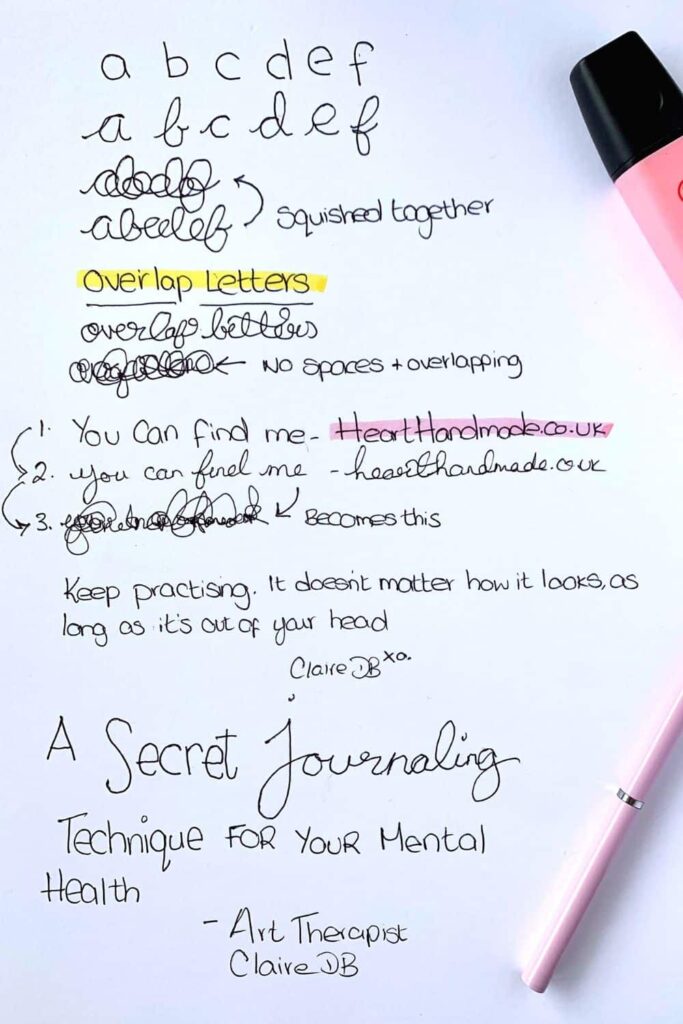 a b c d e f
a b c d e f
abcdef
abcdef Squished together
Overlap Letters
overlap letters
← No spaces + overlapping
1. You Can find me - HeartHandmade.co.uk
2. you can find me - hearthandmade.co.uk
3. Becomes this
Keep practising. It doesn't matter how it looks, as
long as it's out of your head
Claire DB xo.
A Secret Journaling
Technique FOR YOUR Mental
Health
- Art Therapist
Claire DB